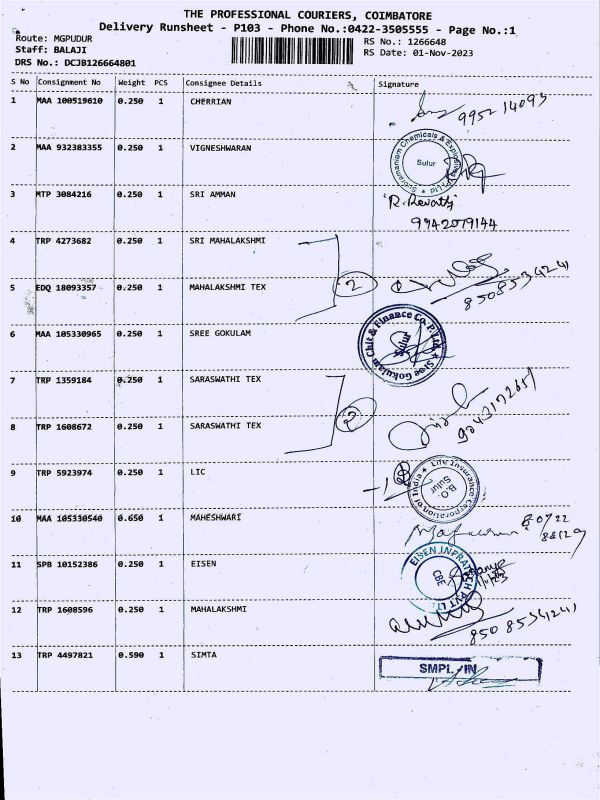 THE PROFESSIONAL COURIERS, COIMBATORE
Delivery Runsheet - P103 - Phone No.:0422-3505555 - Page No.:1
Route: MGPUDUR
RS No.: 1266648
Staff: BALAJI
RS Date: 01-Nov-2023
DRS No.: DCJB126664801
S No Consignment No Weight PCS Consignee Details Signature
1 MAA 100519610 0.250 1 CHERRIAN
995214093
2 MAA 932383355 0.250 1 VIGNESHWARAN
Subramaniam Chemicals & Explosives Pvt Ltd
Sulur
3 MTP 3084216 0.250 1 SRI AMMAN
R. Revathy
9942079144
4 TRP 4273682 0.250 1 SRI MAHALAKSHMI
2
5 EDQ 18093357 0.250 1 MAHALAKSHMI TEX
8508534241
6 MAA 105330965 0.250 1 SREE GOKULAM
Sree Gokulam Chit & Finance Co. P. Ltd.
Sulur
7 TRP 1359184 0.250 1 SARASWATHI TEX
2
8 TRP 1608672 0.250 1 SARASWATHI TEX
9 TRP 5923974 0.250 1 LIC
Life Insurance Corporation of India
B.O
Sulur
10 MAA 105330540 0.650 1 MAHESHWARI
11 SPB 10152386 0.250 1 EISEN
EISEN INFRATECH PVT LTD
CBE
12 TRP 1608596 0.250 1 MAHALAKSHMI
8508534241
13 TRP 4497821 0.590 1 SIMTA
SMPL